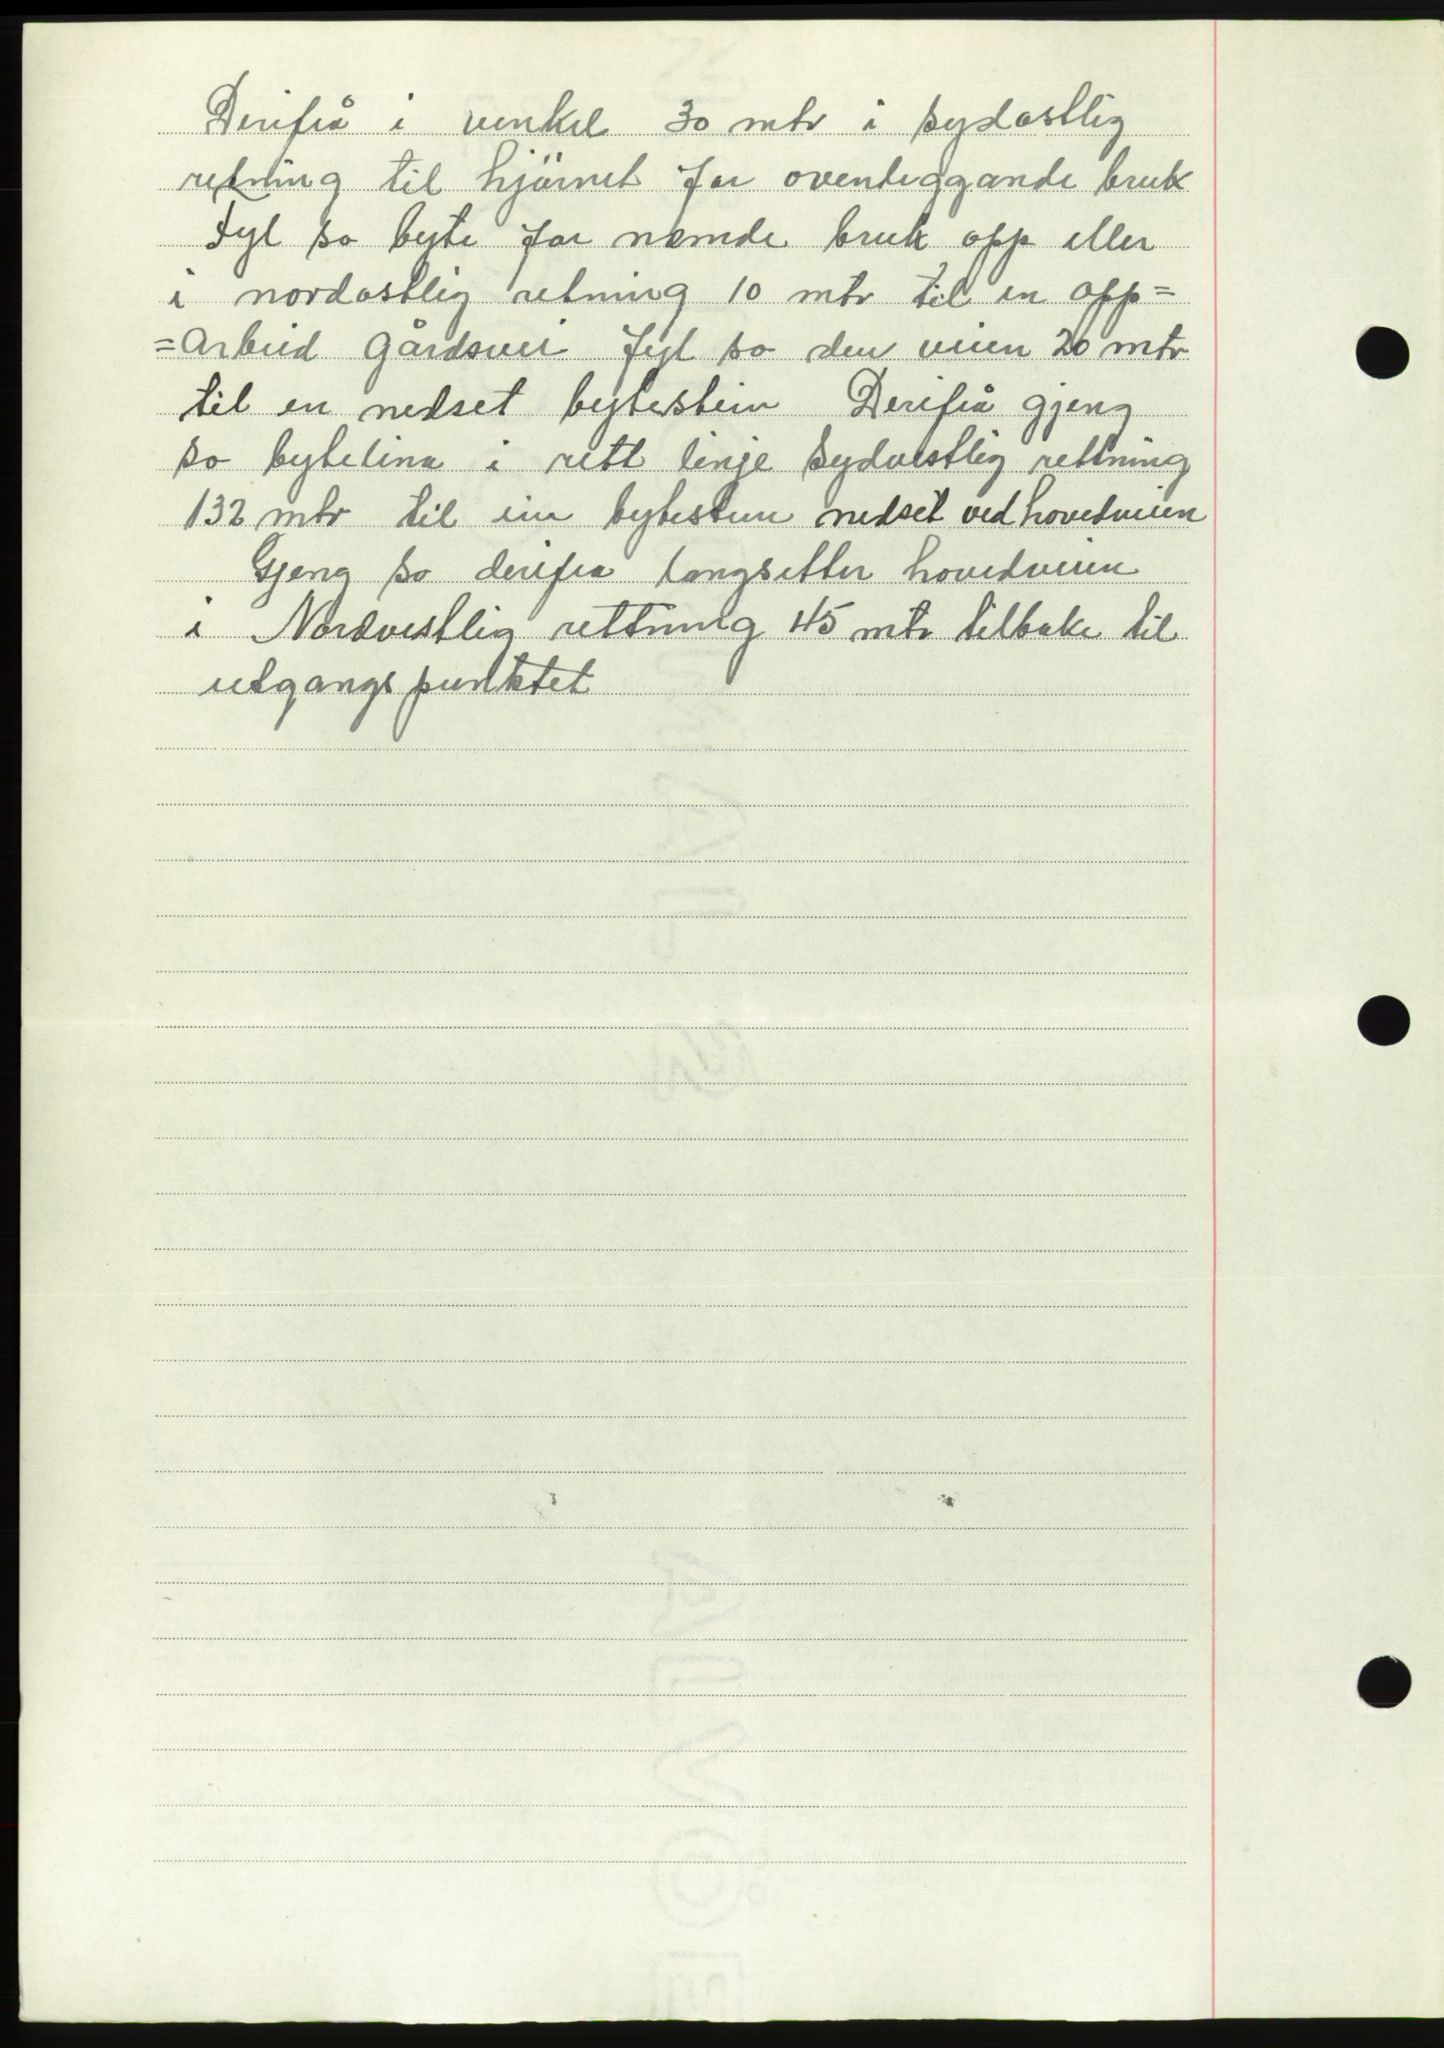 Derifrå i venkel 30 mtr i sydostlig
retning til hjörnet for ovenliggande bruk
Fyl so byte for nemde bruk opp eller
i nordostlig retning 10 mtr til en opp=
=arbeid gårdsvei fyl so den veien 20 mtr
til en nedset bytestein Derifrå gjeng
so bytelina i rett linje sydvestlig rettning
132 mtr til ein bytestein nedset ved hovedveien
Gjeng so derifra langsetter hovedveien
i Nordvestlig rettning 45 mtr tilbake til
utgangspunktet